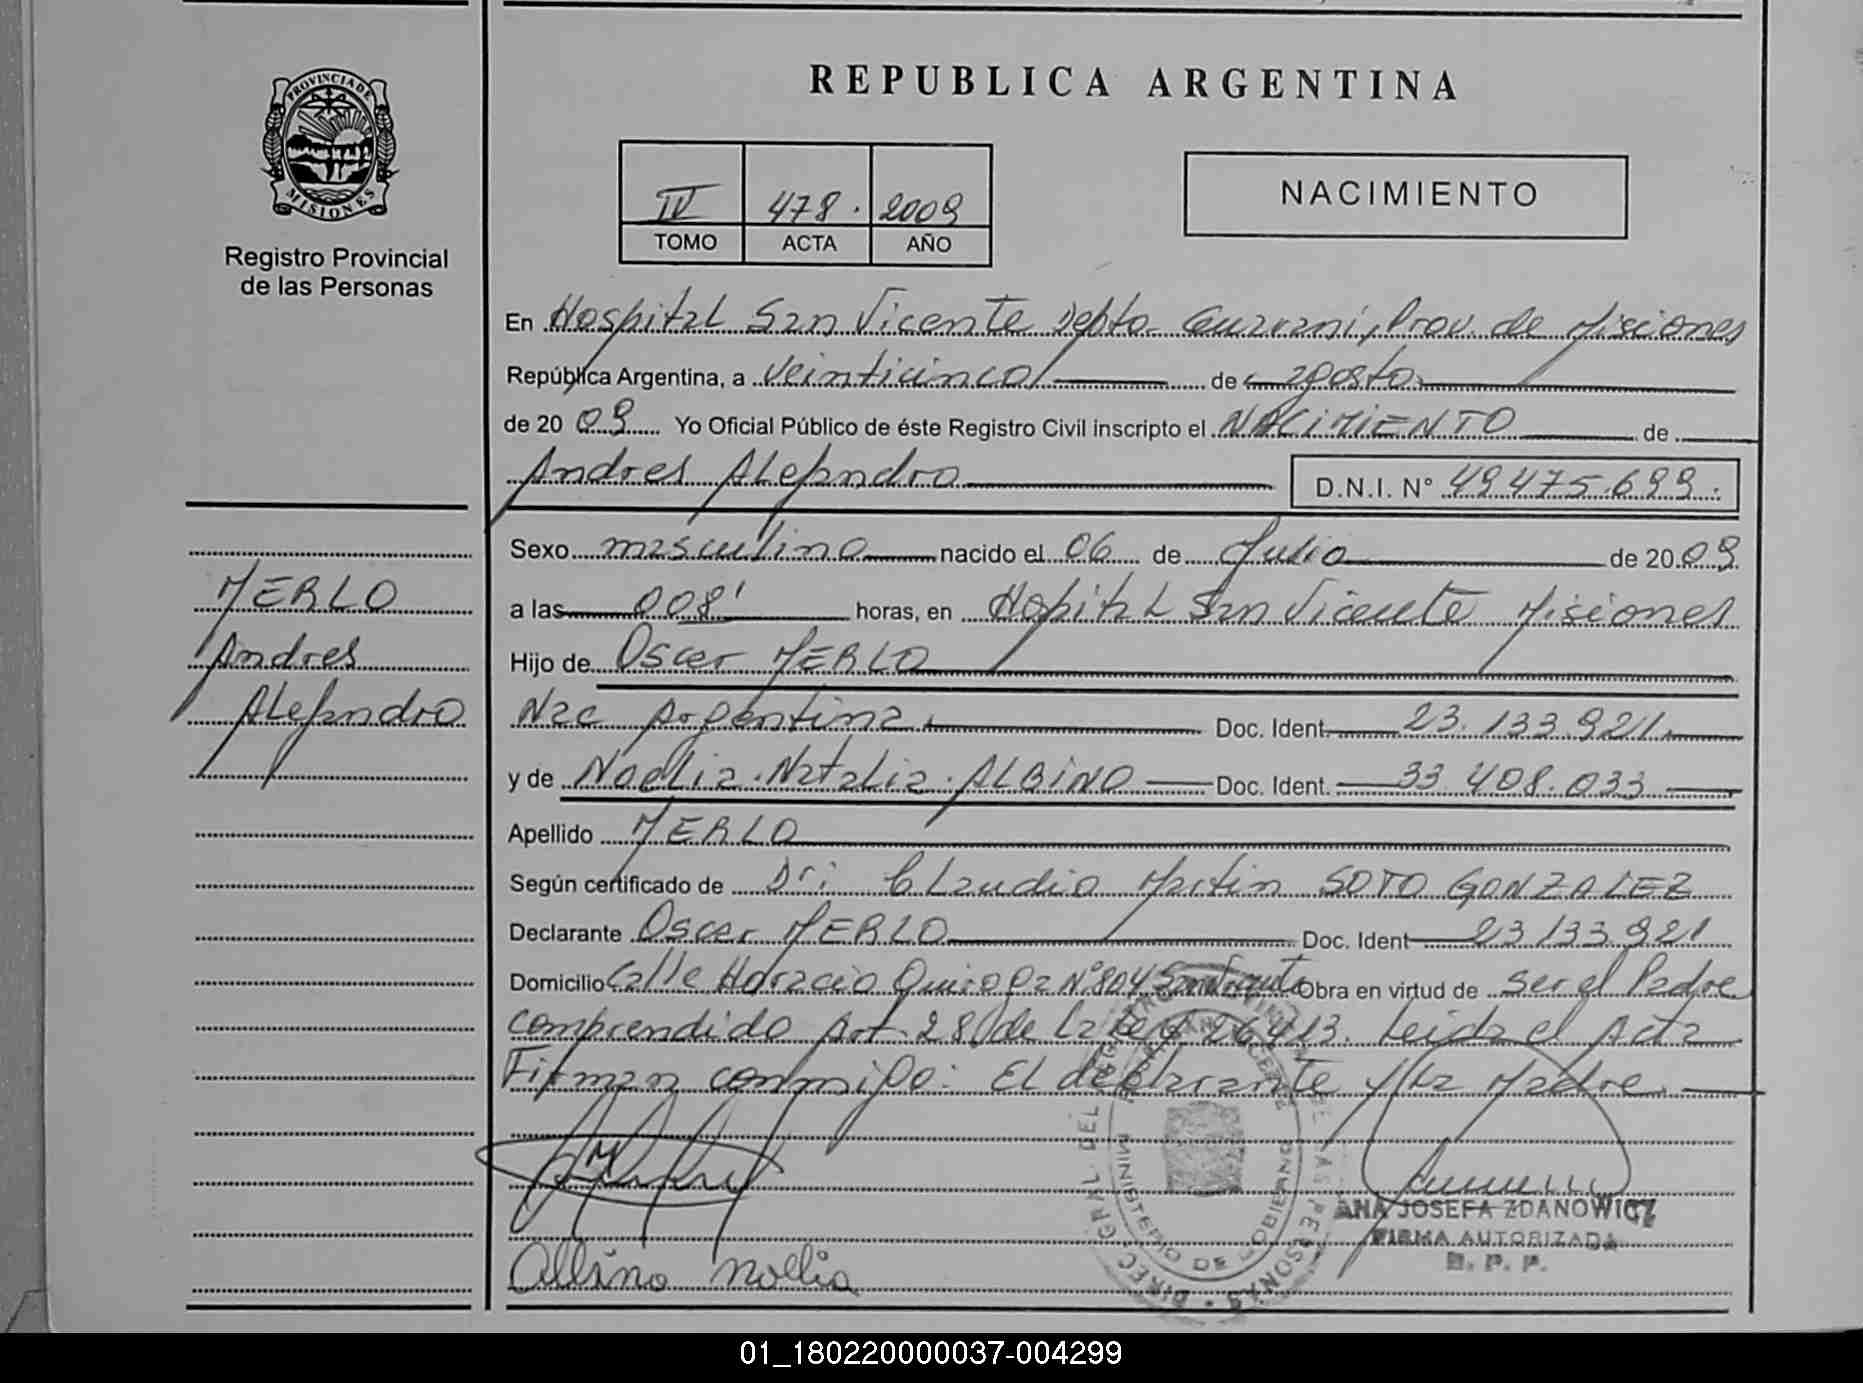 REPUBLICA ARGENTINA
PROVINCIA DE
MISIONES
Registro Provincial
de las Personas
IV 478. 2009
TOMO ACTA AÑO
NACIMIENTO
En Hospital San Vicente Depto. Guarani, Prov. de Misiones
República Argentina, a veinticinco de agosto
de 2009 Yo Oficial Público de éste Registro Civil inscripto el NACIMIENTO de
Andres Alejandro D.N.I. N° 49.475.699.
Sexo masculino nacido el 06 de Julio de 2009
a las 008' horas, en Hopital San Vicente Misiones
Hijo de Oscar MERLO
Nac Argentina. Doc. Ident. 23.133.921.
y de Noelia Natalia ALBINO Doc. Ident. 33.408.033
Apellido MERLO
Según certificado de Dr: Claudio Martin SOTO GONZALEZ
Declarante Oscar MERLO Doc. Ident 23133921
Domicilio Calle Horacio Quiroga N° 804 Obra en virtud de ser el Padre
comprendido Art. 28 de la Ley 26413. Leida el Acta
Firman conmigo: El declarante y la Madre.
MERLO
Andres
Alejandro
Albino Noelia
DIREC. GRAL. DEL DE LAS PERSONAS
MINISTERIO DE GOBIERNO
ANA JOSEFA ZDANOWICZ
FIRMA AUTORIZADA
R. P. P.
01_180220000037-004299